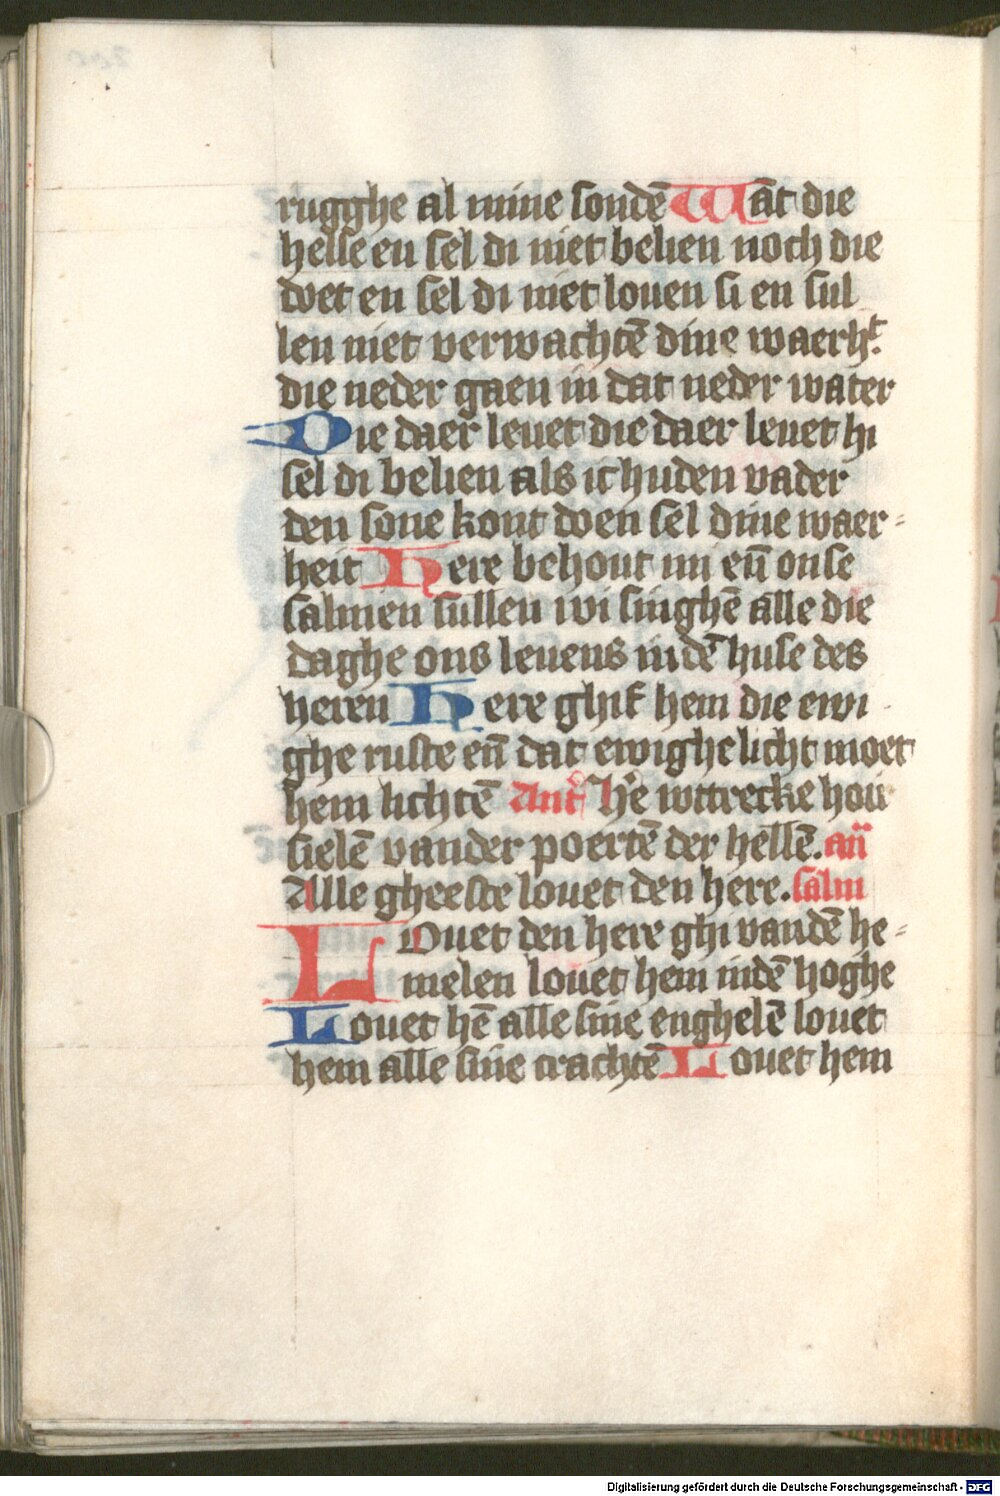 rugghe al mine sondē Wāt die
helle en sel di niet belien noch die
doet en sel di niet louen si en sul
len niet verwachtē dine waerhͭ.
die neder gaen in dat neder water
Die daer leuet die daer leuet hi
sel di belien als ic huden vader
den sone kont doen sel dine waer-
heit Here behout mi eñ onse
salmen sullen wi singhē alle die
daghe ons leuens in dē huse des
heren Here ghif hem die ewi
ghe ruste eñ dat ewighe licht moet
hem lichtē Ant' H'e wttrecke hoir
sielē vander poertē der hellē. añ
Alle gheeste louet den here. salm
LOuet den here ghi vandē he-
melen louet hem indē hoghe
Louet hē alle sine enghelē louet
hem alle sine crachtē Louet hem
Digitalisierung gefördert durch die Deutsche Forschungsgemeinschaft - DFG